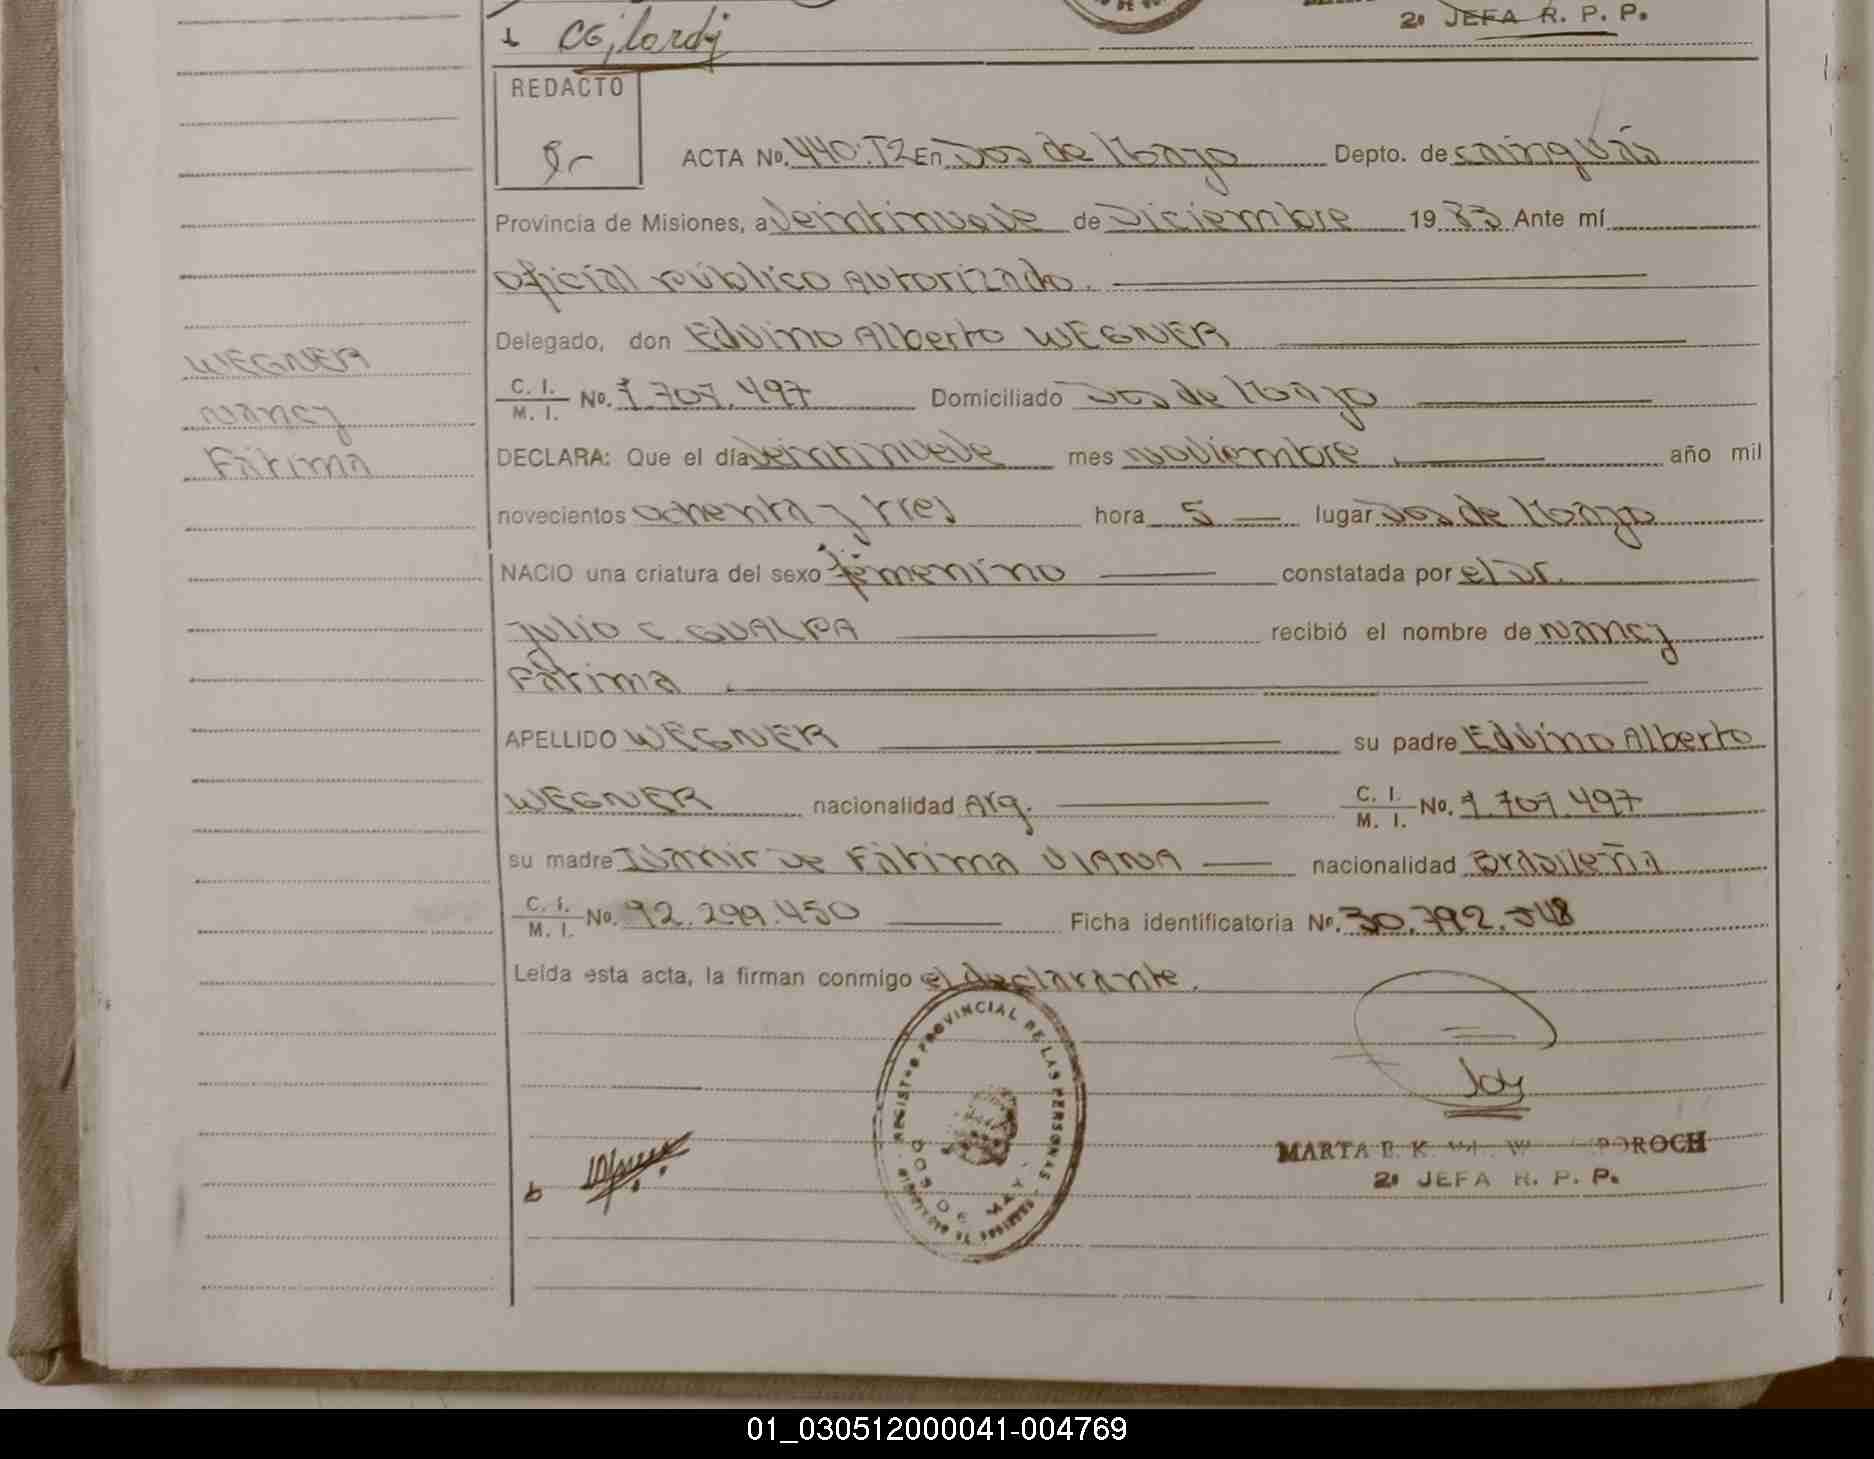 2º JEFA R. P. P.
REDACTO
ACTA No. 440.T2 En Dos de Mayo Depto. de Cainguás
Provincia de Misiones, a veintinueve de Diciembre 1983 Ante mí
oficial público autorizado.
Delegado, don Edvino Alberto WEGNER
WEGNER
C. I.
M. I. No. 7.707.497 Domiciliado Dos de Mayo
Nancy
DECLARA: Que el día veintinueve mes noviembre año mil
Fátima
novecientos ochenta y tres hora 5 lugar Dos de Mayo
NACIO una criatura del sexo femenino constatada por el Dr.
Julio C. GUALPA recibió el nombre de Nancy
Fátima
APELLIDO WEGNER su padre Edvino Alberto
WEGNER nacionalidad Arg. C. I.
M. I. No. 7.707.497
su madre Ivanir de Fátima VIANA nacionalidad Brasileña
C. I.
M. I. No. 92.299.450 Ficha identificatoria No. 30.792.548
Leída esta acta, la firman conmigo el declarante.
REGISTRO PROVINCIAL DE LAS PERSONAS
DOS DE MAYO
MARTA E. K. POROCH
2º JEFA R. P. P.
01_030512000041-004769